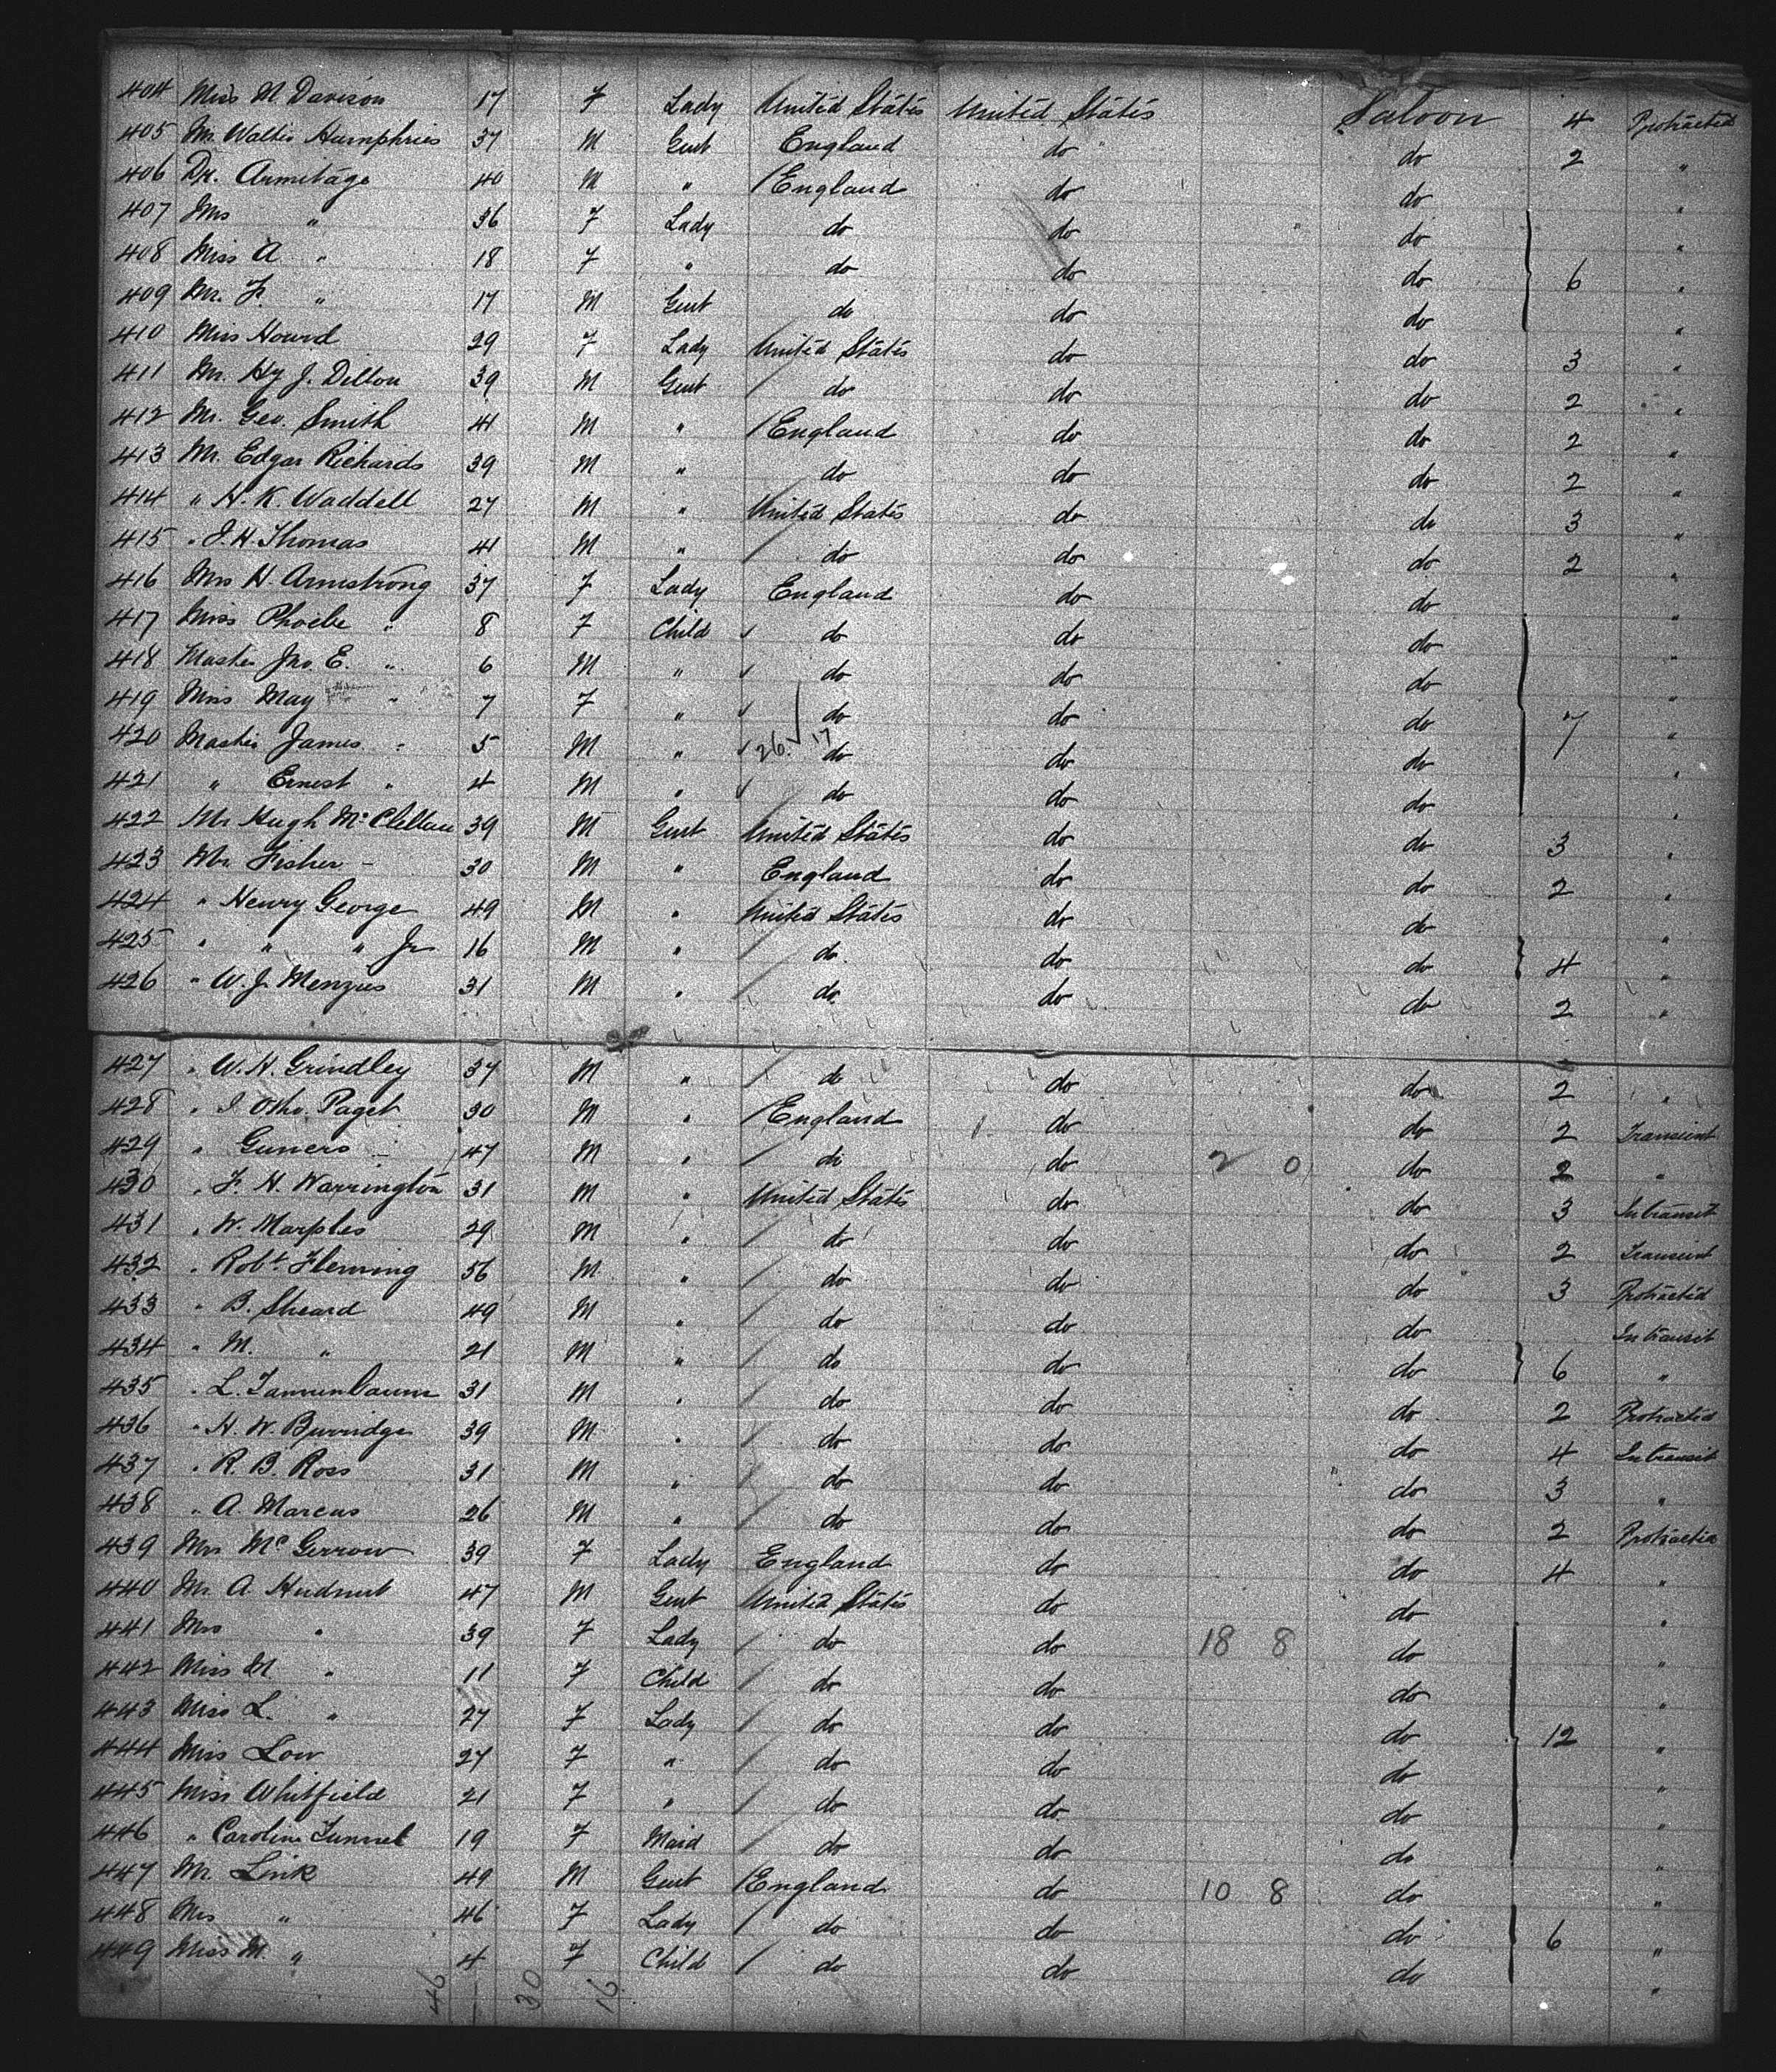 404 Miss M Davison 17 F Lady United States United States Saloon 4 Protracted
405 Mr. Walter Humphries 37 M Gent England do do 2 "
406 Dr. Armitage 40 M " England do do "
407 Mrs " 36 F Lady do do do "
408 Miss A " 18 F " do do do 6 "
409 Mr. F. " 17 M Gent do do do "
410 Miss 29 F Lady United States do do 3 "
411 Mr. Hy J. Dillon 39 M Gent do do do 2 "
412 Mr. Geo. Smith 41 M " England do do 2 "
413 Mr. Edgar Richards 39 M " do do do 2 "
414 " H. K. Waddell 27 M " United States do do 3 "
415 " J. H. Thomas 41 M " do do do 2 "
416 Mrs H. Armstrong 37 F Lady England do do "
417 Miss Phoebe " 8 F Child do do do "
418 Master Jno. E. " 6 M " do do do "
419 Miss May " 7 F " do do do 7 "
420 Master James " 5 M " 26. 17 do do do "
421 " Ernest " 4 M " do do do "
422 Mr Hugh McClellan 39 M Gent United States do do 3 "
423 Mr. Fisher - 30 M " England do do 2 "
424 " Henry George 49 M " United States do do "
425 " " " Jr 16 M " do do do 4 "
426 " W. J. Menzies 31 M " do do do 2 "
427 " W. H. Grindley 37 M " do do do 2 "
428 " J. Otho. Paget 30 M " England do do 2 Transient
429 " 47 M " do do 2 0 do 2 "
430 " F. H. Warrington 31 M " United States do do 3 In transit
431 " W. Marples 29 M " do do do 2 Transient
432 " Robt Fleming 56 M " do do do 3 Protracted
433 " B. Sheard 49 M " do do do In transit
434 " M. " 21 M " do do do 6 "
435 " L. Tannenbaum 31 M " do do do 2 Protracted
436 " H. W. Burridge 39 M " do do do 4 In transit
437 " R. B. Ross 31 M " do do do 3 "
438 " A. Marcus 26 M " do do do 2 Protracted
439 Mrs McGerrow 39 F Lady England do do 4 "
440 Mr. A Hudnut 47 M Gent United States do do "
441 Mrs " 39 F Lady do do 18 8 do "
442 Miss M. " 11 F Child do do do "
443 Miss L. " 27 F Lady do do do 12 "
444 Miss Low 27 F " do do do "
445 Miss Whitfield 21 F " do do do "
446 " Caroline 19 F Maid do do do "
447 Mr. Link 49 M Gent England do 10 8 do "
448 Mrs " 46 F Lady do do do 6 "
449 Miss M. " 4 F Child do do do "
46 30 16